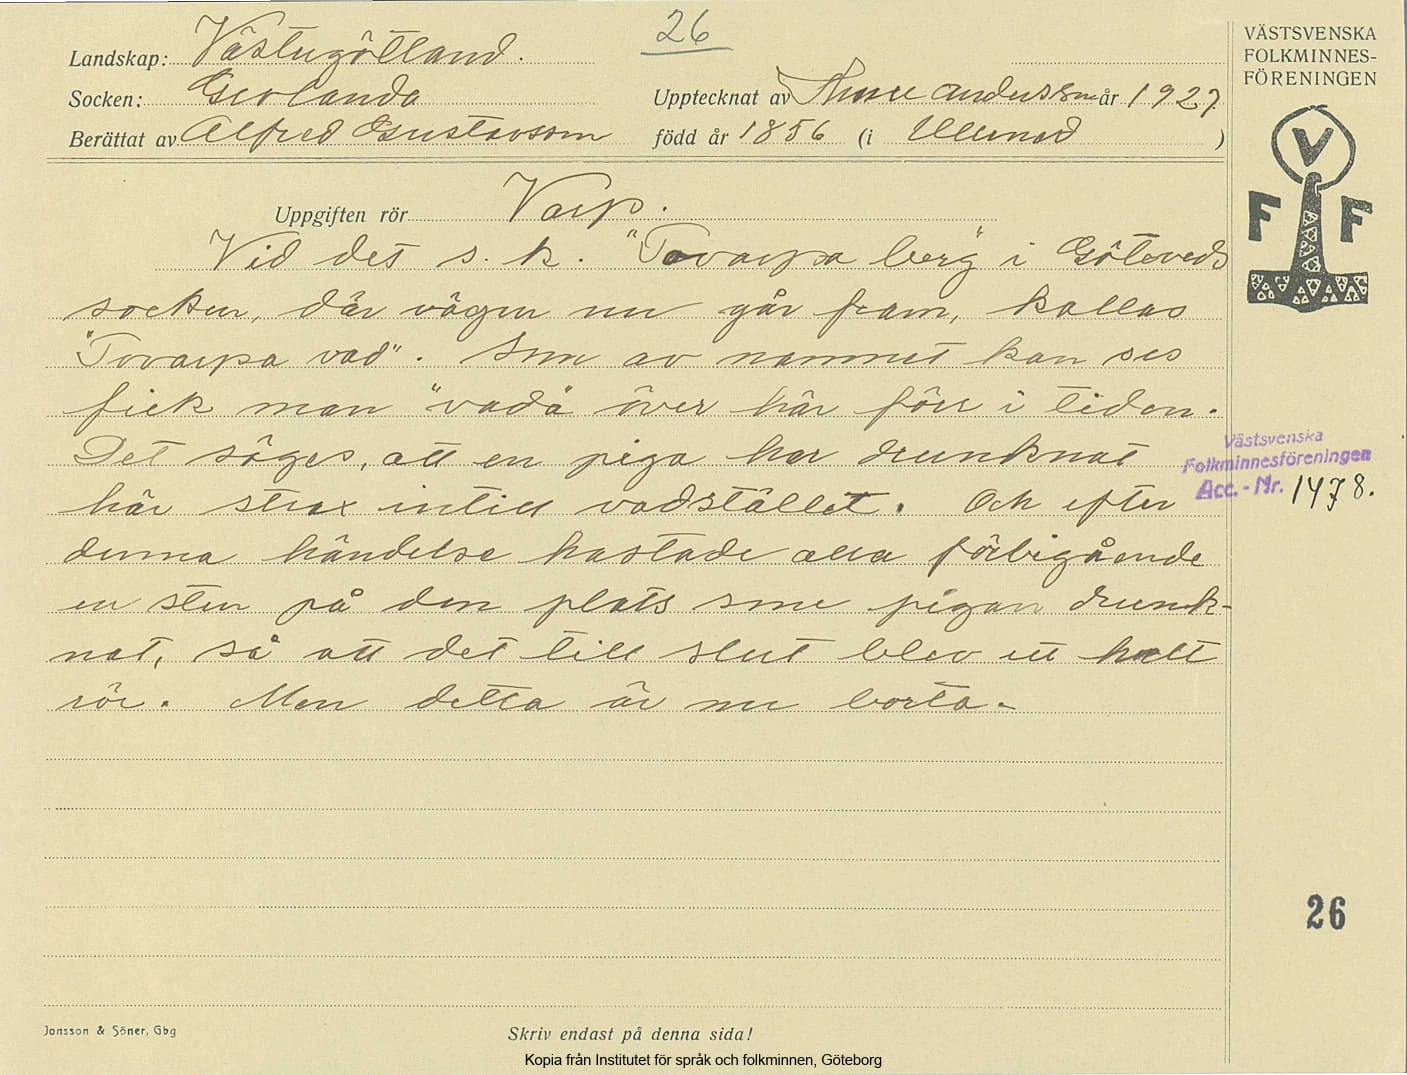 26
Landskap: Västergötland.
Socken: Gerlanda
Upptecknat av Ture Andersson år 1927.
Berättat av Alfred Gustavsson född år 1856 (i Ullened )
Uppgiften rör Varp.
Vid det s. k. "Tovarpa berg" i Göteveds
socken, där vägen nu går fram, kallas
"Tovarpa vad". Som av namnet kan ses
fick man "vada" över här förr i tiden.
Det säges, att en piga har drunknat
här strax intill vadstället. Och efter
denna händelse kastade alla förbigående
en sten på den plats som pigan drunk-
nat, så att det till slut blev ett helt
rör. Men detta är nu borta.
VÄSTSVENSKA
FOLKMINNES-
FÖRENINGEN
V
F F
Västsvenska
Folkminnesföreningen
Acc. - Nr. 1478.
26
Jonsson & Söner, Gbg
Skriv endast på denna sida!
Kopia från Institutet för språk och folkminnen, Göteborg